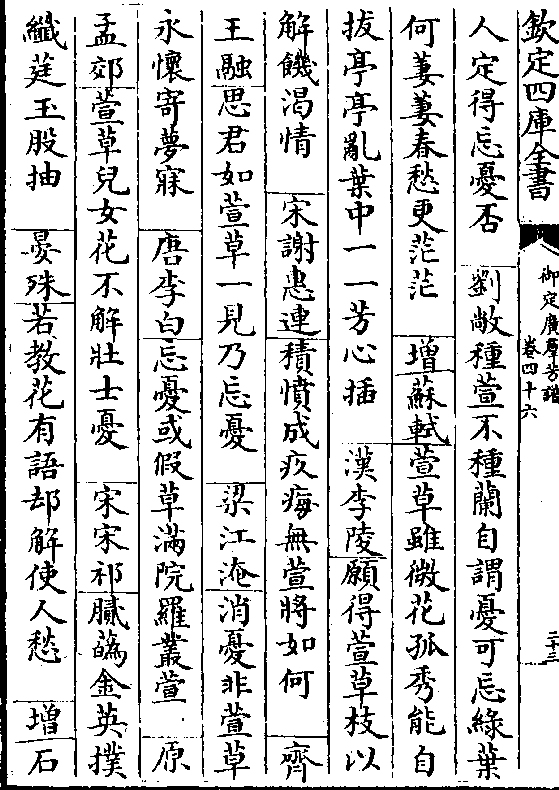 欽定四庫全書
御定廣羣芳譜
卷四十六
二十三
人定得忘憂否　劉敞種萱不種蘭自謂憂可忘綠葉
何萋萋春愁更茫茫　增蘇軾萱草雖微花孤秀能自
拔亭亭亂葉中一一芳心插　漢李陵願得萱草枝以
解饑渴情　宋謝惠連積憤成疢痗無萱將如何　齊
王融思君如萱草一見乃忘憂　梁江淹消憂非萱草
永懷寄夢寐　唐李白忘憂或假草滿院羅叢萱　原
孟郊萱草兒女花不解壯士憂　宋宋祁膩蘤金英撲
纖莛玉股抽　晏殊若教花有語却解使人愁　增石